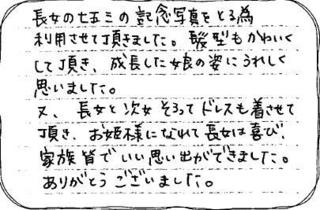 長女の七五三の記念写真をとる為
利用させて頂きました。髪型もかわいく
して頂き、成長した娘の姿にうれしく
思いました。
又、長女と次女そろってドレスも着させて
頂き、お姫様になれて長女は喜び
家族皆でいい思い出ができました。
ありがとうございました。